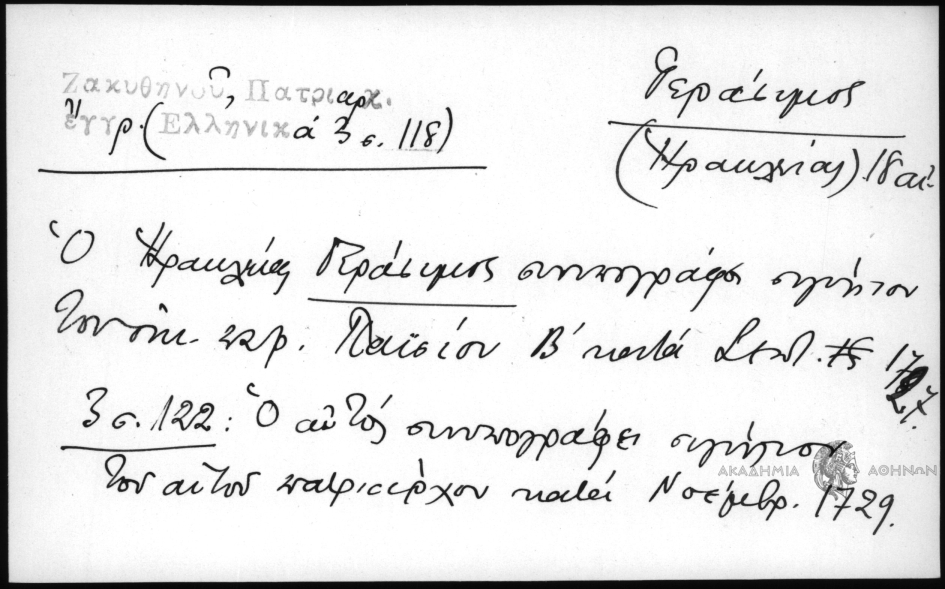 Ζακυθηνοῦ, Πατριαρχ.
ἔγγρ. (Ἑλληνικά 3 σ. 118)
Γεράσιμος
(Ἡρακλείας) 18 αἰ.
Ὁ Ἡρακλείας Γεράσιμος συνυπογράφει σιγίλλιον
τοῦ οἰκ. πατρ. Παϊσίου Β′ κατά Σεπτ. 1727.
3 σ. 122: Ὁ αὐτός συνυπογράφει σιγίλλιον
τοῦ αὐτοῦ πατριάρχου κατά Νοέμβρ. 1729.
ΑΚΑΔΗΜΙΑ ΑΘΗΝΩΝ